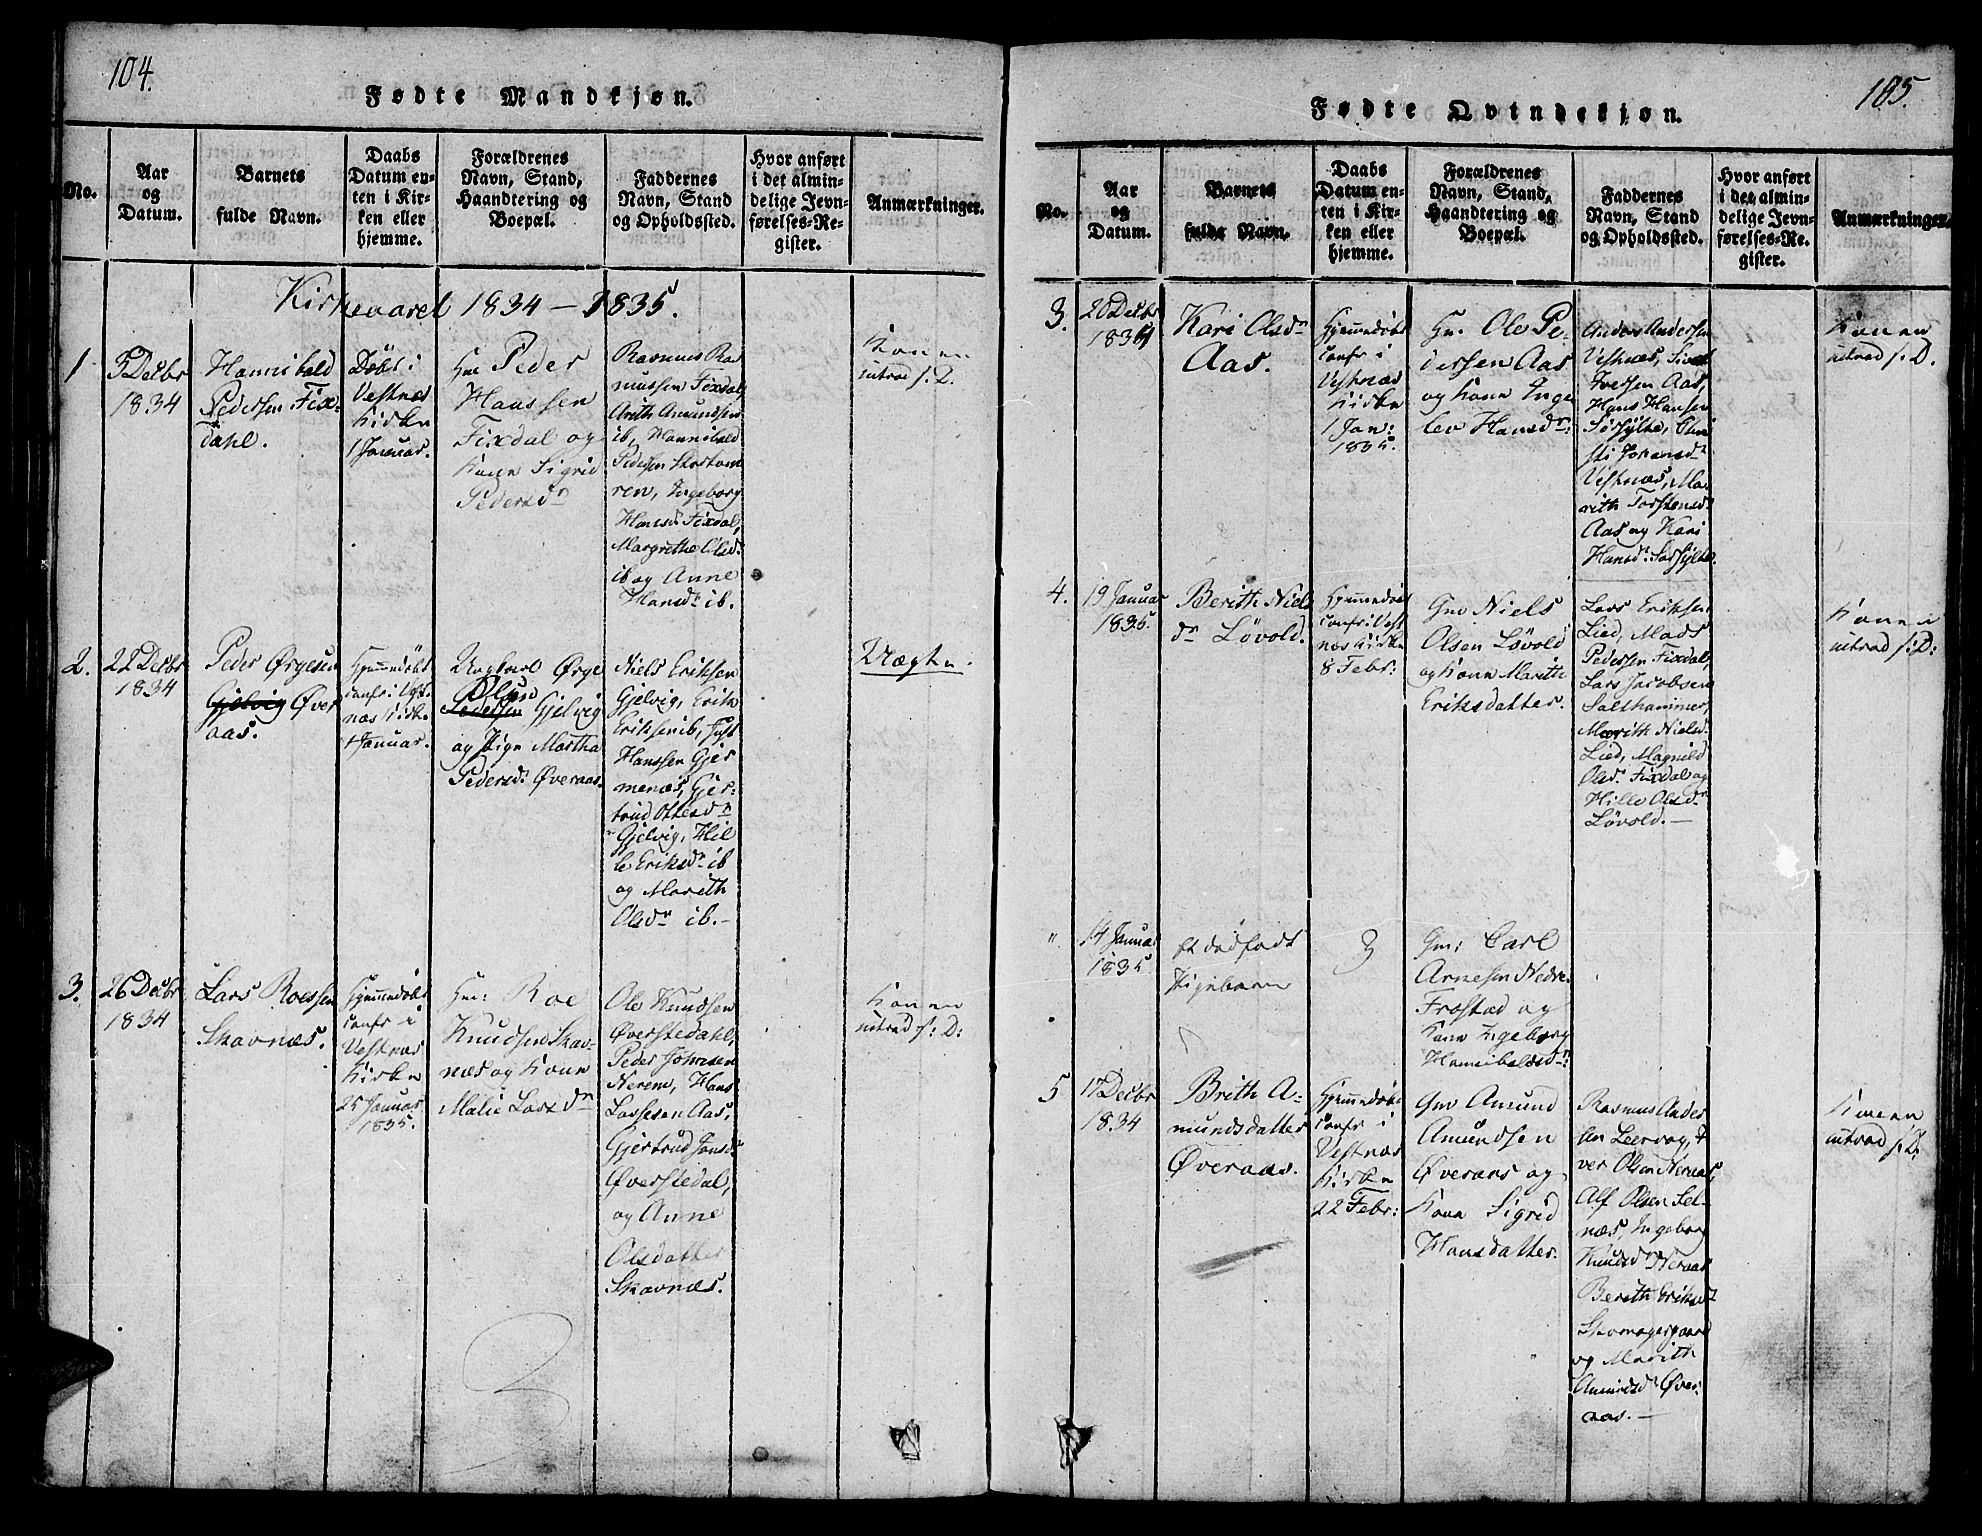 104.
Fødte Mandkjøn.
No.
Aar
og
Datum.
Barnets
fulde Navn.
Daabs
Datum en-
ten i Kir-
ken eller
hjemme.
Forældrenes
Navn, Stand,
Haandtering og
Boepæl.
Faddernes
Navn, Stand
og Opholdssted.
Hvor anført
i det almin-
delige Jevn-
førelses-Re-
gister.
Anmærkninger.
Kirkeaaret 1834 – 1835.
1
5 Decbr
1834
Hannibald
Pedersen Fix-
dahl.
Døbt i
Vestnæs
Kirke
1 Januar.
Gm Peder
Hanssen
Fixdal og
Kone Sigrid
Pedersdr
Rasmus Ras
mussen Fixdal,
Arith Amundsen
ib, Hannibald
Pedersen
ren, Ingeborg
Hansd Fixdal,
Margrethe Olsdr
ib og Anne
Hansdr ib.
Konen
introd s. D.
2.
22 Decbr
1834
Peder Ørgesen
Gjelvig Øver
aas.
Hjemmedøbt
confr: i Vest
næs Kirke
1 Januar.
Ungkarl Ørge
Olsen
Pedersen Gjelvig
og Pige Martha
Pedersdr Øveraas.
Niels Eriksen
Gjelvig, Erik
Eriksen ib, Just
Hanssen Gjer
menæs, Gjer-
trud Ottesdr
Gjelvig, Hil
le Eriksdr ib
og Marith
Olsdr ib. –
Uægte.
3.
26 Decbr
1834
Lars Roessen
Skavnæs.
Hjemmedøbt
confr i
Vestnæs
Kirke
25 Januar
1835.
Gm: Roe
Knudsen Skav-
næs og Kone
Malie Larsdr
Ole Knudsen
Øverstedahl,
Peder Johnsen
Nerem, Hans
Lassesen Aas,
Gjertrud Jonsdr
Øverstedal,
og Anne
Olsdatter
Skavnæs.
Konen
introd s: D:
105.
Fødte Qvindekjøn.
No.
Aar
og
Datum.
Barnets
fulde Navn.
Daabs
Datum en-
ten i Kir-
ken eller
hjemme.
Forældrenes
Navn, Stand,
Haandtering og
Boepæl.
Faddernes
Navn, Stand
og Opholdssted.
Hvor anført
i det almin-
delige Jevn-
førelses-Re-
gister.
Anmærkninger.
3.
20 Decbr
1834
Kari Olsdr
Aas.
Hjemmedøbt
confr i
Vestnæs
Kirke
1 Jan:
1835.
Gm. Ole Pe-
dersen Aas
og Kone Inge
lev Hansdr:
Anders Andersen
Vestnæs, Sivert
Iversen Aas,
Hans Hansen
Sørsylte,
Johansdr
Vestnæs, Ma
rith Torstensdr
Aas og Kari
Hansdr: Sørsylte.
Konen
introd s. D.
4.
19 Januar
1835.
Berith Niels
dr Løvold.
Hjemmedøbt
confr: i Vest
næs Kirke
8 Febr:
Gm Niels
Olsen Løvold
og Kone Marith
Eriksdatter.
Lars Eriksen
Lied, Mads
Pedersen Fixdal,
Lars Jacobsen
Salthammer,
Marith Nielsdr
Lied, Magnild
Olsdr Fixdal og
Hille Olsdr
Løvold. –
Konen
introd s: D:
"
14 Januar
1835
et dødfødt
Pigebarn
Gm: Carl
Arnesen Nedre
Frostad og
Kone Ingeborg
Hannibaldsdr:
5
17 Decbr
1834
Brith A-
mundsdatter
Øveraas.
Hjemmedøbt
confr i
Vestnæs
Kirke
22 Febr:
Gm Amund
Amundsen
Øveraas og
Kone Sigrid
Hansdatter.
Rasmus Ander
sen Leervag, I
ver Olsen Neraas,
Alf Olsen Sel-
næs, Ingeborg
Knudsdr Neraas
Berith Eriksdr
Skomagergaard
og Marith
Amundsdr Øver-
aas. –
Konen
introd s: D: